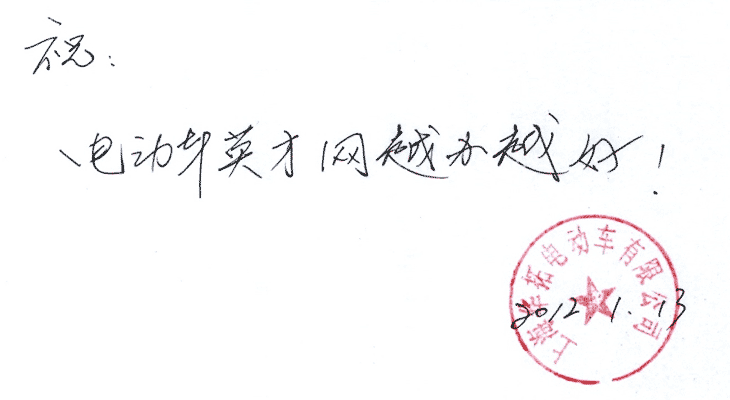 祝:
电动车英才网越办越好!
上海华拓电动车有限公司
2012.1.13